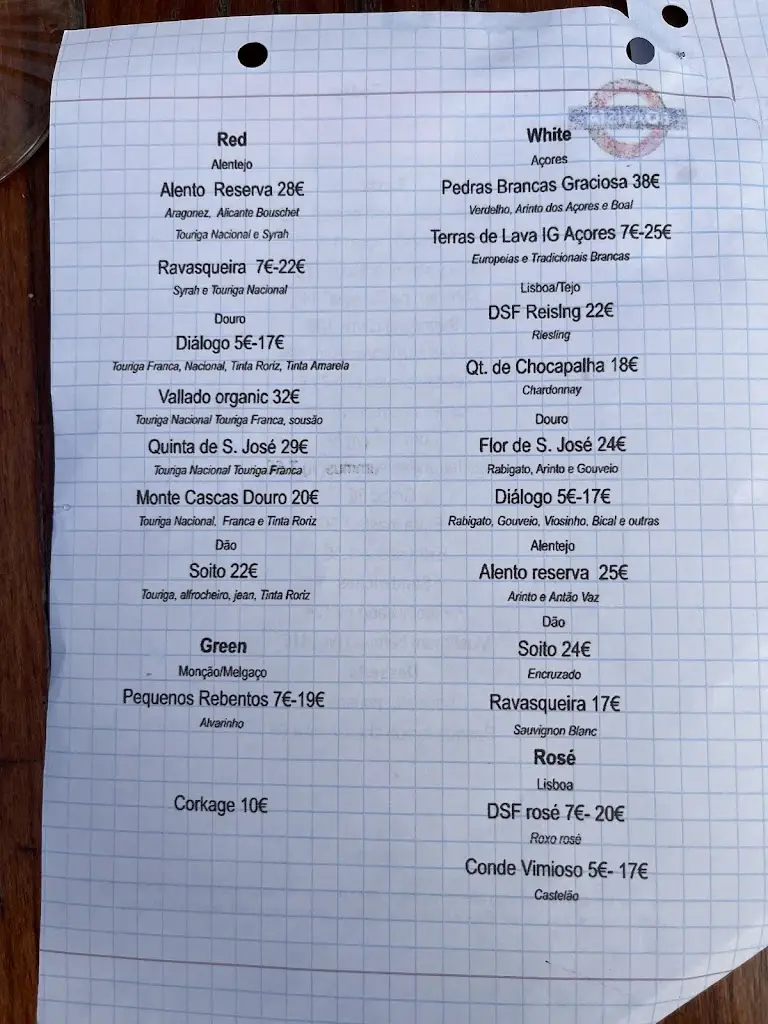 Red
Alentejo
Alento Reserva 28€
Aragonez, Alicante Bouschet
Touriga Nacional e Syrah
Ravasqueira 7€-22€
Syrah e Touriga Nacional
Douro
Diálogo 5€-17€
Touriga Franca, Nacional, Tinta Roriz, Tinta Amarela
Vallado organic 32€
Touriga Nacional Touriga Franca, sousão
Quinta de S. José 29€
Touriga Nacional Touriga Franca
Monte Cascas Douro 20€
Touriga Nacional, Franca e Tinta Roriz
Dão
Soito 22€
Touriga, alfrocheiro, jean, Tinta Roriz
Green
Monção/Melgaço
Pequenos Rebentos 7€-19€
Alvarinho
Corkage 10€
White
Açores
Pedras Brancas Graciosa 38€
Verdelho, Arinto dos Açores e Boal
Terras de Lava IG Açores 7€-25€
Europeias e Tradicionais Brancas
Lisboa/Tejo
DSF Reislng 22€
Riesling
Qt. de Chocapalha 18€
Chardonnay
Douro
Flor de S. José 24€
Rabigato, Arinto e Gouveio
Diálogo 5€-17€
Rabigato, Gouveio, Viosinho, Bical e outras
Alentejo
Alento reserva 25€
Arinto e Antão Vaz
Dão
Soito 24€
Encruzado
Ravasqueira 17€
Sauvignon Blanc
Rosé
Lisboa
DSF rosé 7€- 20€
Roxo rosé
Conde Vimioso 5€- 17€
Castelão